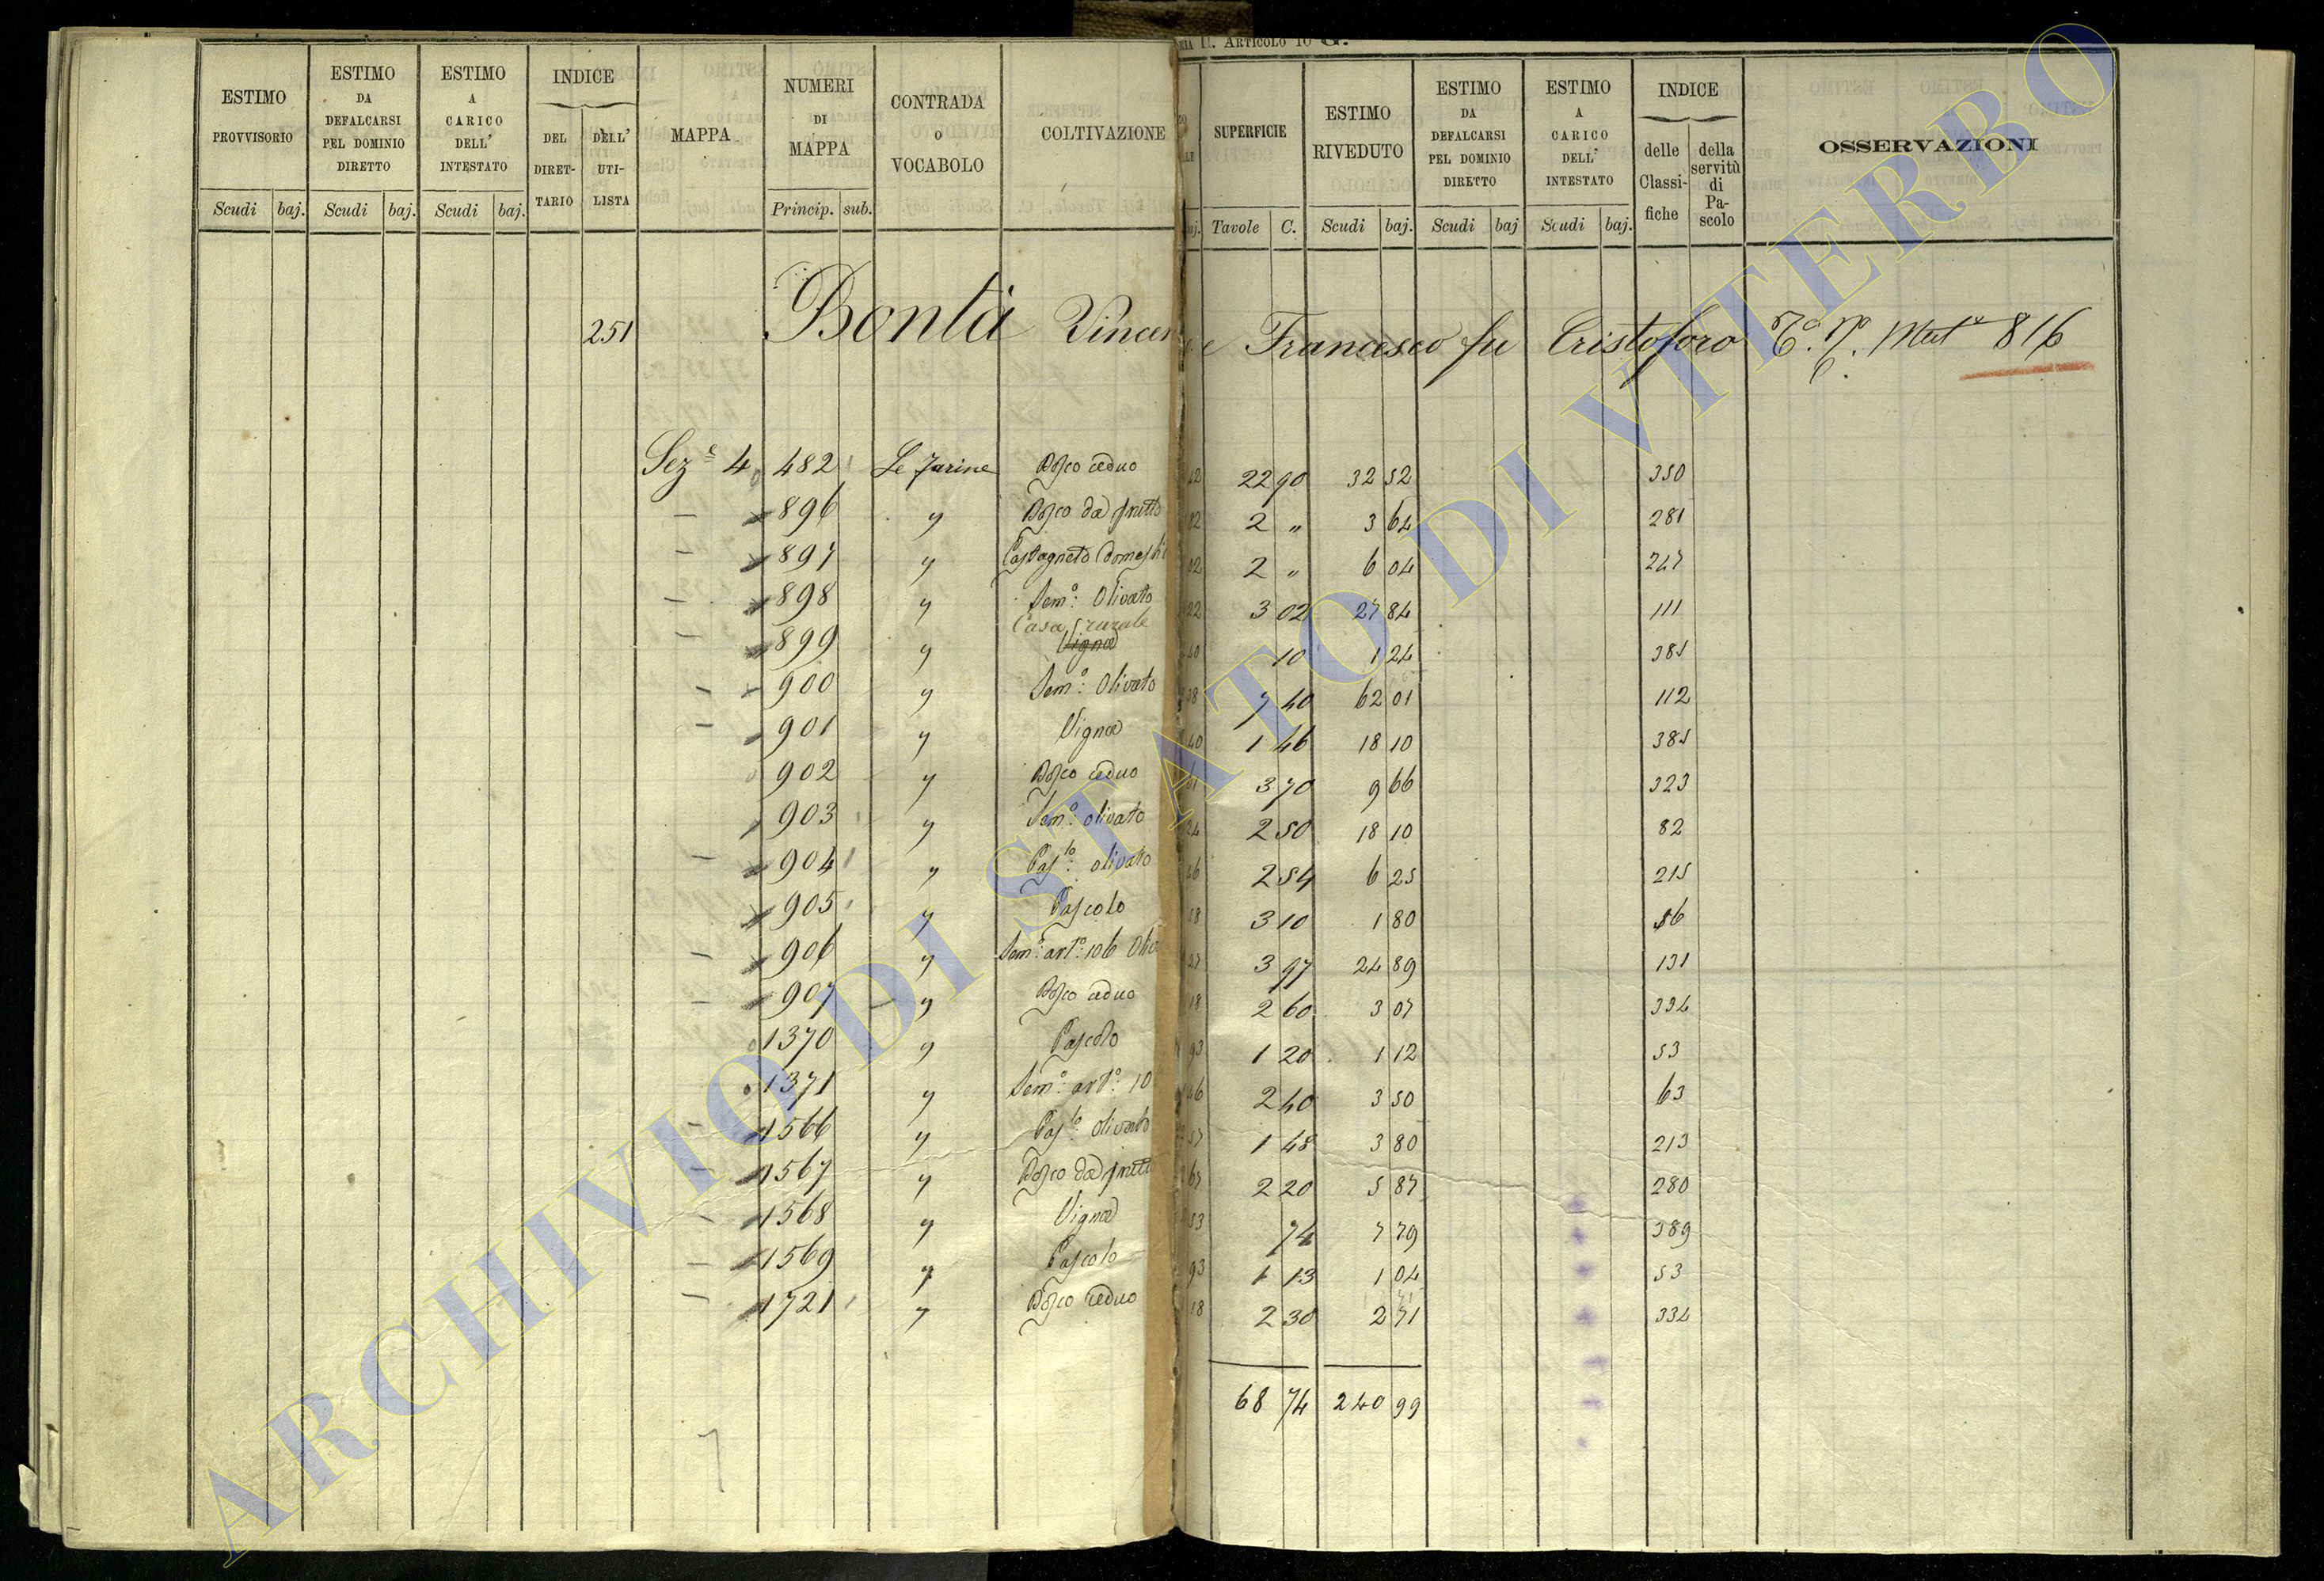 ARCHIVIO DI STATO DI VITERBO
ARTICOLO 10 G.
ESTIMO PROVVISORIO
ESTIMO DA DEFALCARSI PEL DOMINIO DIRETTO
ESTIMO A CARICO DELL' INTESTATO
INDICE
DEL DIRET-TARIO
DELL' UTI-LISTA
MAPPA
NUMERI DI MAPPA
CONTRADA o VOCABOLO
COLTIVAZIONE
SUPERFICIE
ESTIMO RIVEDUTO
ESTIMO DA DEFALCARSI PEL DOMINIO DIRETTO
ESTIMO A CARICO DELL' INTESTATO
INDICE
delle Classi-fiche
della servitù di Pa-scolo
OSSERVAZIONI
Scudi baj. Scudi baj. Scudi baj. Princip. sub. Tavole C. Scudi baj. Scudi baj Scudi baj.
251 Bontà Vincen e Francesco fu Cristoforo 816
Sez.e 4 482 Le Farine Bosco ceduo 42 22 90 32 52 350
896 y Bosco da frutto 2 " 3 64 281
897 y Castagneto Domesti 02 2 " 6 04 247
898 y Sem.o Olivato 22 3 02 27 84 111
Casa rurale
899 y Vigna 40 10 1 24 385
900 y Sem.o Olivato 38 7 40 62 01 112
901 y Vigna 40 1 46 18 10 385
902 y Bosco ceduo 61 3 70 9 66 323
903 y Sem.o olivato 24 2 50 18 10 82
904 y Pas.lo olivato 46 2 54 6 25 215
905 y Pascolo 58 3 10 1 80 56
906 y Sem.o art.o 106 Oliv 27 3 97 24 89 131
907 y Bosco ceduo 18 2 60 3 07 334
1370 y Pascolo 93 1 20 1 12 53
1371 y Sem.o art.o 10 46 2 40 3 50 63
1566 y Pas.lo olivato 57 1 48 3 80 213
1567 y Bosco da frutt 67 2 20 5 87 280
1568 y Vigna 53 74 7 79 389
1569 y Pascolo 93 1 13 1 04 53
1721 y Bosco ceduo 18 2 30 2 71 334
68 74 240 99